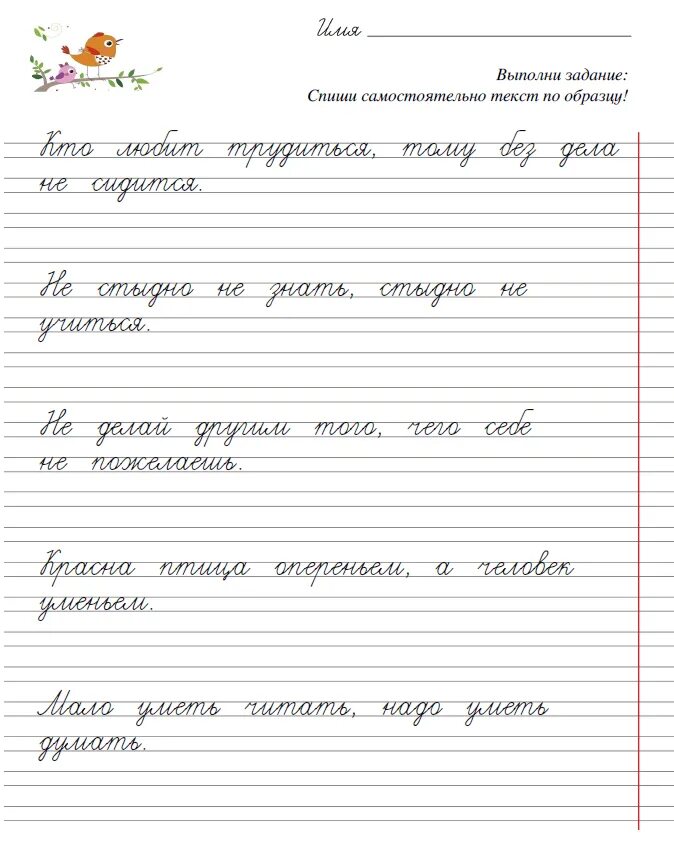 Имя
Выполни задание:
Спиши самостоятельно текст по образцу!
Кто любит трудиться, тому без дела
не сидится.
Не стыдно не знать, стыдно не
учиться.
Не делай другим того, чего себе
не пожелаешь.
Красна птица опереньем, а человек
уменьем.
Мало уметь читать, надо уметь
думать.